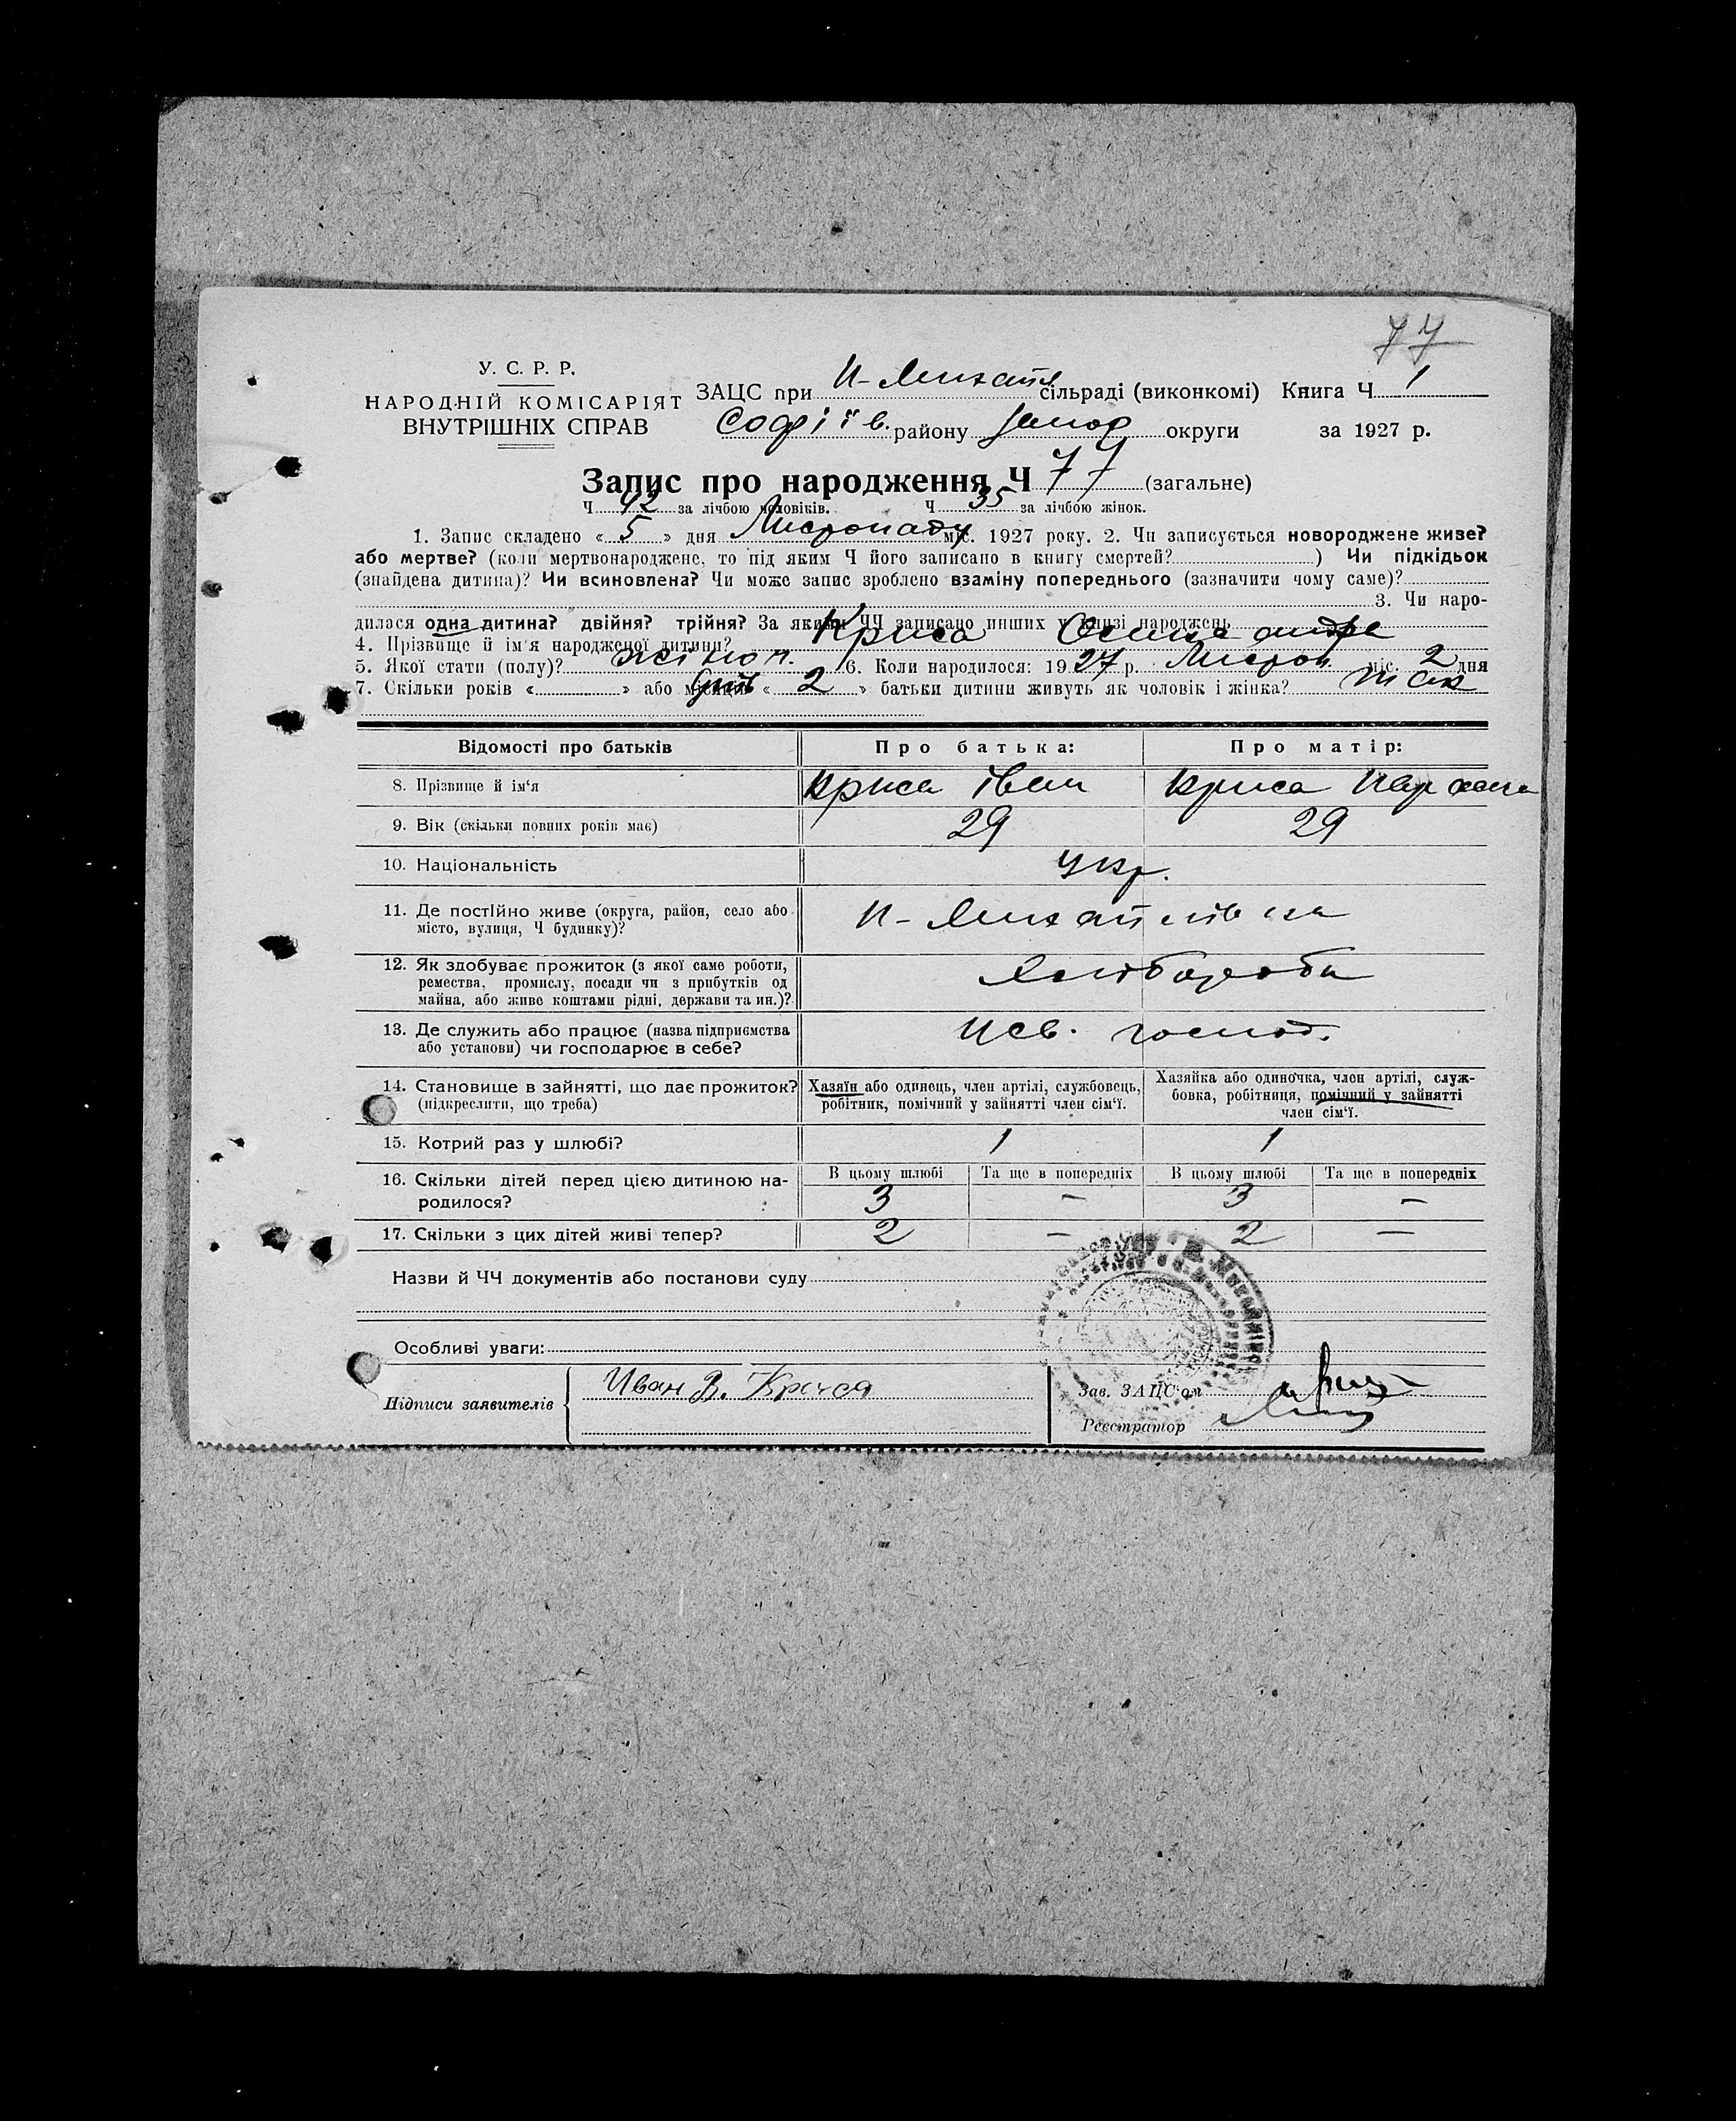 77
У. С. Р. Р.
НАРОДНІЙ КОМІСАРІЯТ
ВНУТРІШНІХ СПРАВ
ЗАЦС при Н-Михайл сільраді (виконкомі) Книга Ч 1
Софіїв. району Запор округи за 1927 р.
Запис про народження Ч 77 (загальне)
Ч 42 за лічбою чоловіків. Ч 35 за лічбою жінок.
1. Запис складено « 5 » дня Листопаду міс. 1927 року. 2. Чи записується новороджене живе?
або мертве? (коли мертвонароджене, то під яким Ч його записано в книгу смертей? ) Чи підкідьок
(знайдена дитина)? Чи всиновлена? Чи може запис зроблено взаміну попереднього (зазначити чому саме)?
3. Чи наро-
дилася одна дитина? двійня? трійня? За якими ЧЧ записано инших у книзі народжень
4. Прізвище й ім'я народженої дитини? Криса
5. Якої стати (полу)? жіноч. 6. Коли народилося: 1927 р. Листоп. міс. 2 дня
7. Скільки років « » або місяців « 2 » батьки дитини живуть як чоловік і жінка? так
Відомості про батьків Про батька: Про матір:
8. Прізвище й ім'я Криса Іван Криса
9. Вік (скільки повних років має) 29 29
10. Національність Укр.
11. Де постійно живе (округа, район, село або Н-Михайлівка
місто, вулиця, Ч будинку)?
12. Як здобуває прожиток (з якої саме роботи, Хліборобы
ремества, промислу, посади чи з прибутків од
майна, або живе коштами рідні, держави та ин.)?
13. Де служить або працює (назва підприємства господ.
або установи) чи господарює в себе?
14. Становище в зайнятті, що дає прожиток? Хазяїн або одинець, член артілі, службовець, Хазяйка або одиночка, член артілі, служ-
(підкреслити, що треба) робітник, помічний у зайнятті член сім'ї. бовка, робітниця, помічний у зайнятті
член сім'ї.
15. Котрий раз у шлюбі? 1 1
16. Скільки дітей перед цією дитиною на- В цьому шлюбі Та ще в попередніх В цьому шлюбі Та ще в попередніх
родилося? 3 – 3 –
17. Скільки з цих дітей живі тепер? 2 – 2 –
Назви й ЧЧ документів або постанови суду
Особливі уваги:
Підписи заявителів Иван В. Криса
Зав. ЗАЦС'ом
Реєстратор